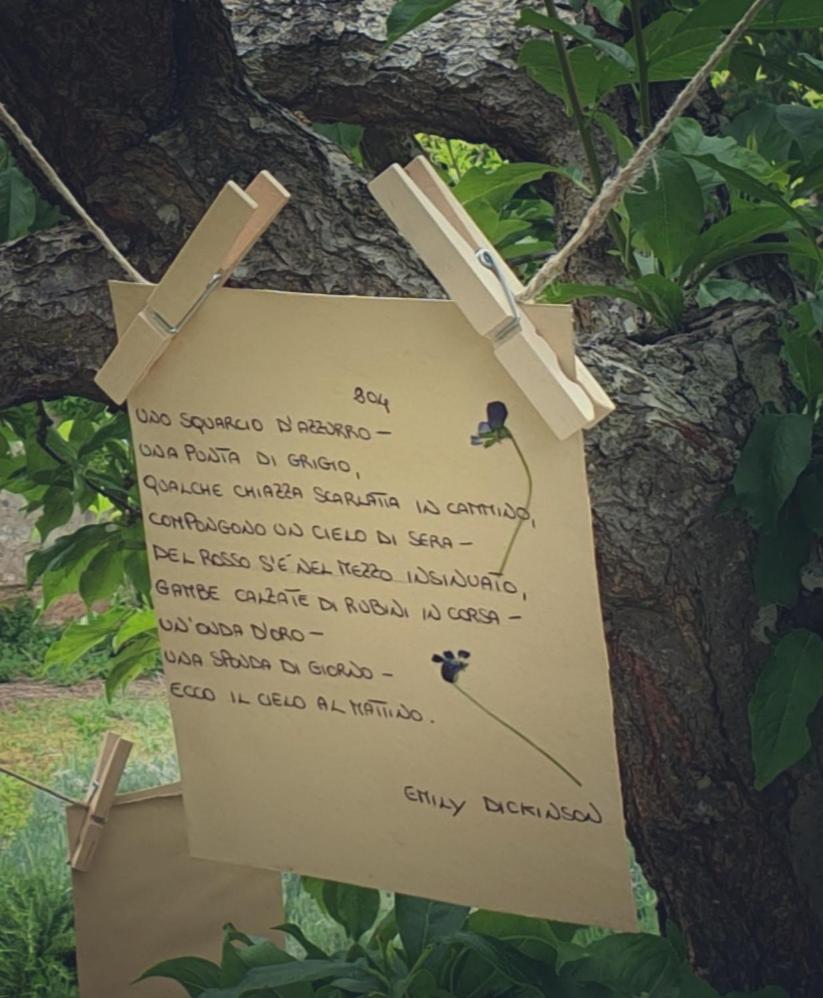 804
UNO SQUARCIO D'AZZURRO –
UNA PUNTA DI GRIGIO,
QUALCHE CHIAZZA SCARLATTA IN CAMMINO,
COMPONGONO UN CIELO DI SERA –
DEL ROSSO S'È NEL MEZZO INSINUATO,
GAMBE CALZATE DI RUBINI IN CORSA –
UN'ONDA D'ORO –
UNA SPONDA DI GIORNO –
ECCO IL CIELO AL MATTINO.
EMILY DICKINSON